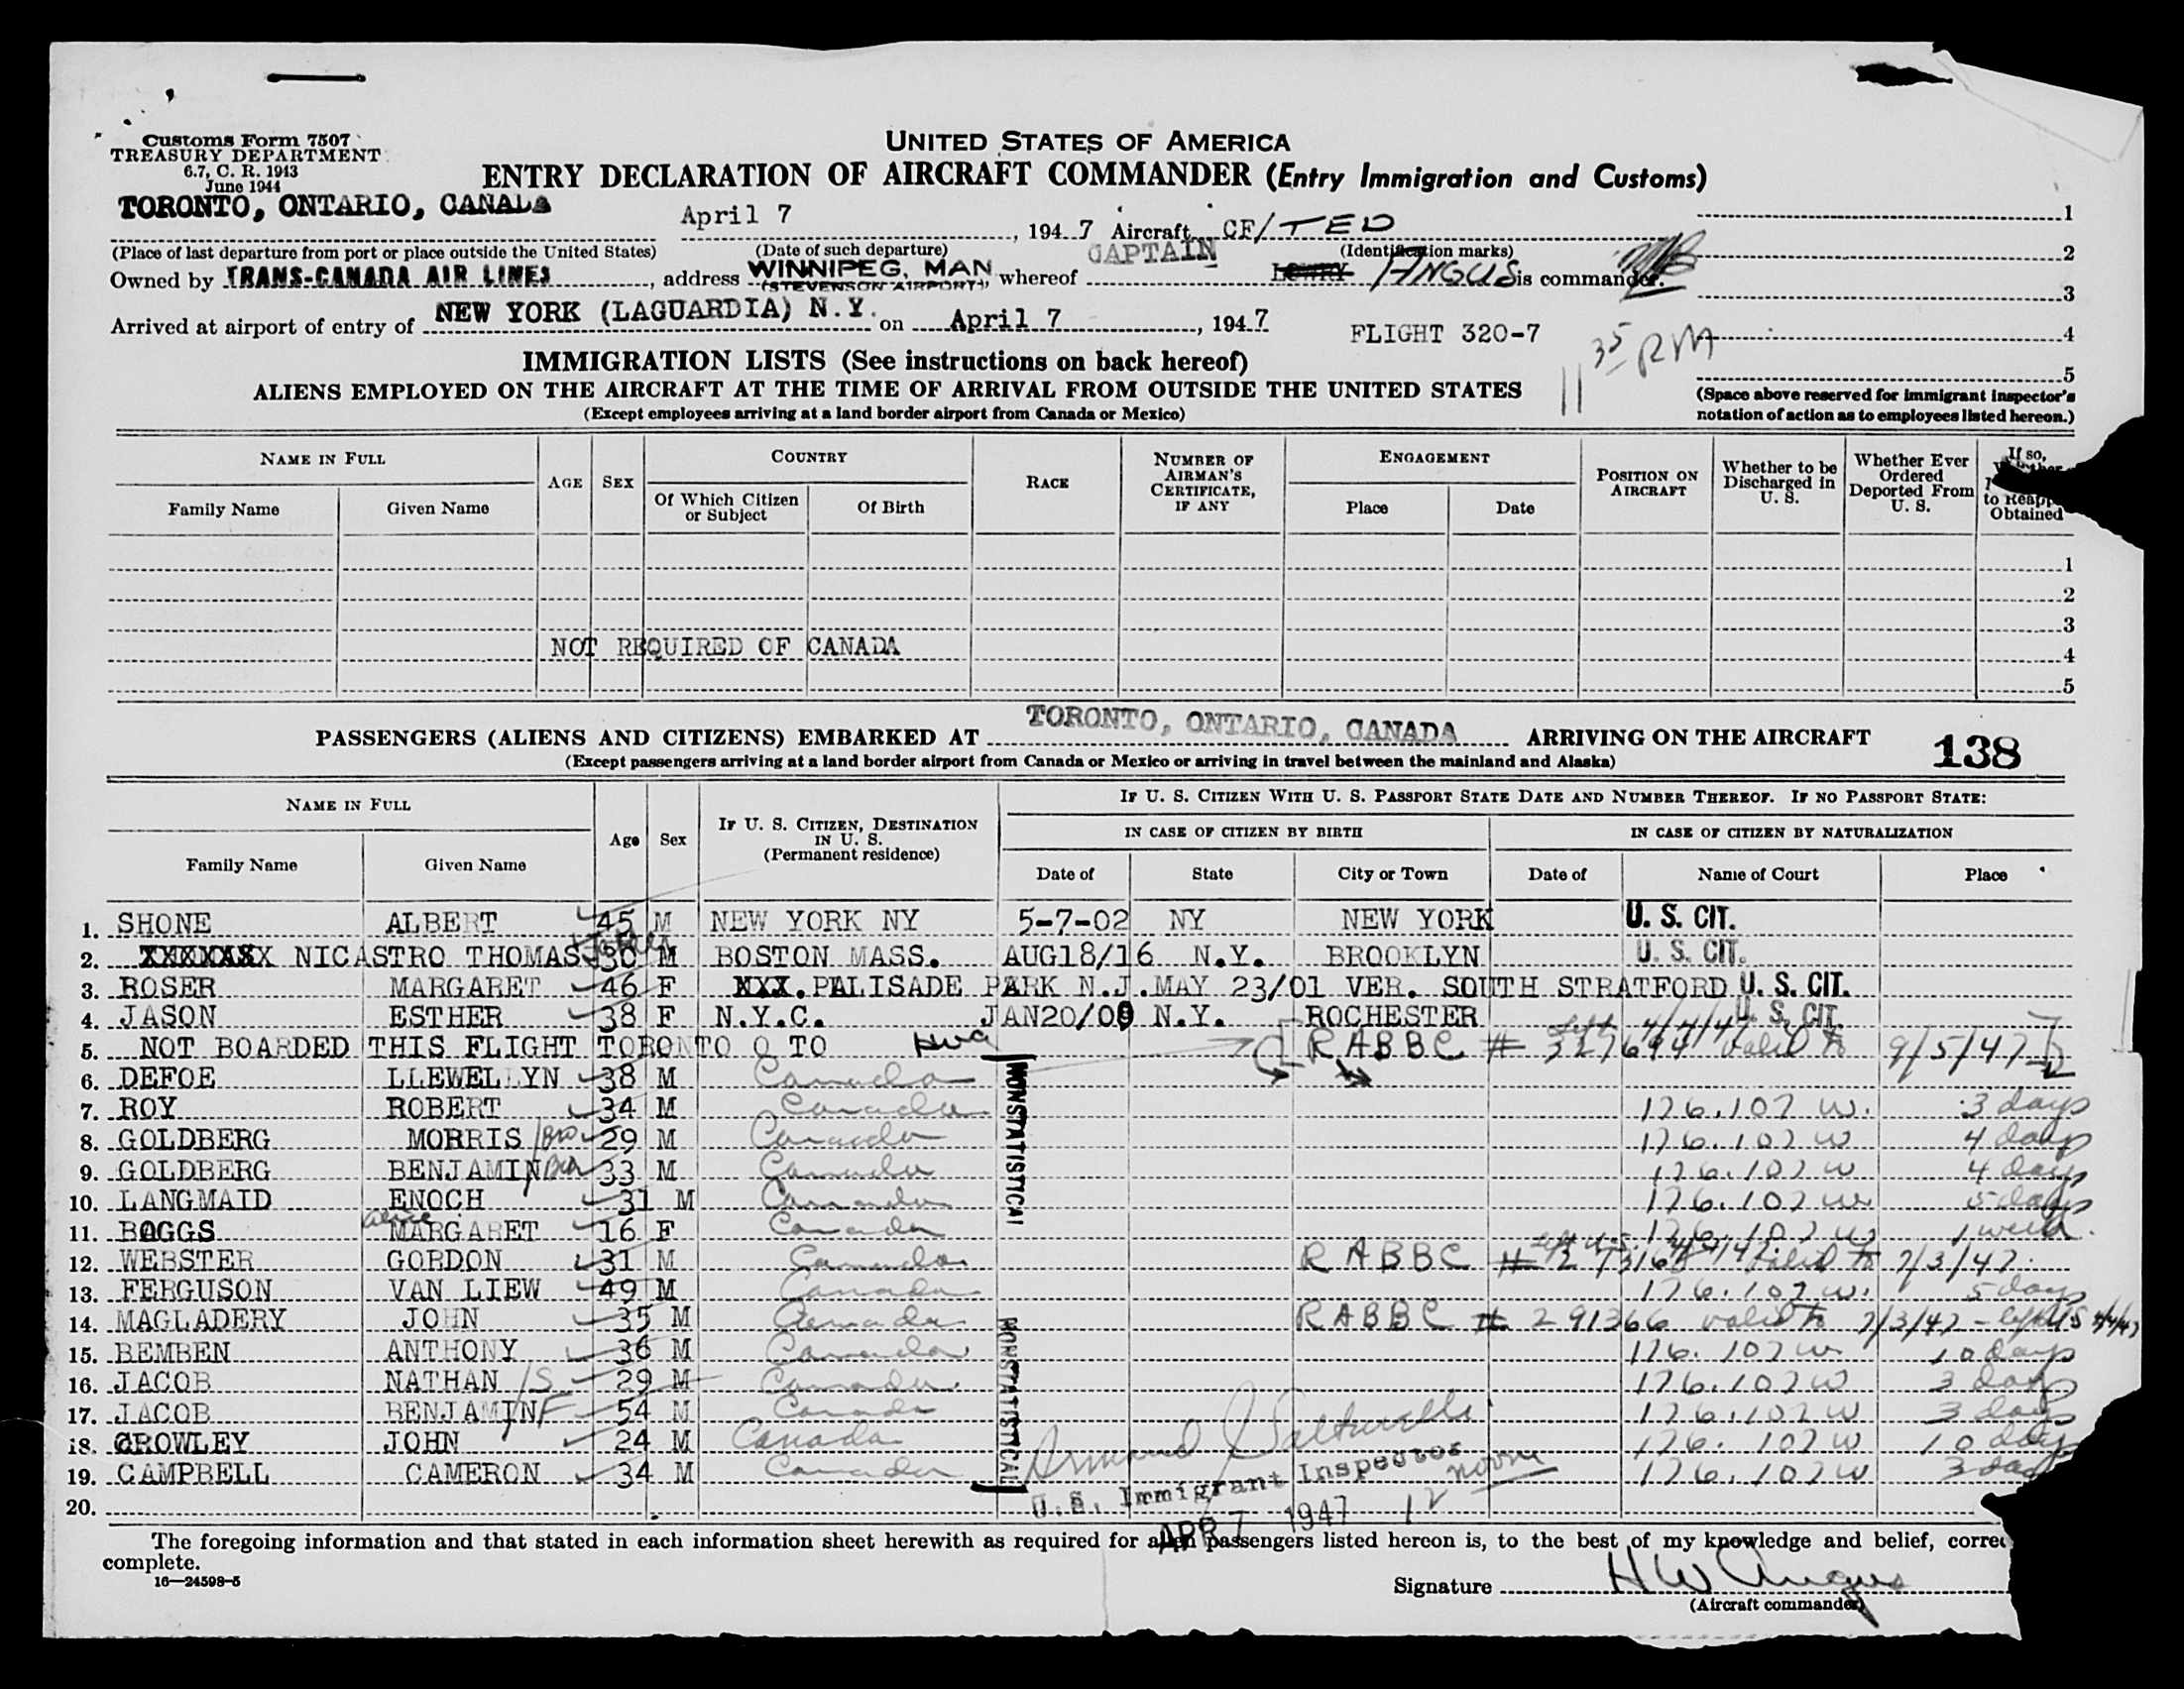 Customs Form 7507
TREASURY DEPARTMENT
6.7, C. R. 1943
June 1944
UNITED STATES OF AMERICA
ENTRY DECLARATION OF AIRCRAFT COMMANDER (Entry Immigration and Customs)
TORONTO, ONTARIO, CANADA April 7, 1947 Aircraft CF/TED 1
(Place of last departure from port or place outside the United States) (Date of such departure) (Identification marks) 2
Owned by TRANS-CANADA AIR LINES, address WINNIPEG, MAN (STEVENSON AIRPORT), whereof CAPTAIN LOWRY ANGUS is commander. 3
Arrived at airport of entry of NEW YORK (LAGUARDIA) N.Y. on April 7, 1947 FLIGHT 320-7 4
1135 PM
5
IMMIGRATION LISTS (See instructions on back hereof)
ALIENS EMPLOYED ON THE AIRCRAFT AT THE TIME OF ARRIVAL FROM OUTSIDE THE UNITED STATES
(Space above reserved for immigrant inspector's notation of action as to employees listed hereon.)
(Except employees arriving at a land border airport from Canada or Mexico)
NAME IN FULL AGE SEX COUNTRY RACE NUMBER OF AIRMAN'S CERTIFICATE, IF ANY ENGAGEMENT POSITION ON AIRCRAFT Whether to be Discharged in U. S. Whether Ever Ordered Deported From U. S. If so, to Obtained
Family Name Given Name Of Which Citizen or Subject Of Birth Place Date
1
2
3
NOT REQUIRED OF CANADA 4
5
PASSENGERS (ALIENS AND CITIZENS) EMBARKED AT TORONTO, ONTARIO, CANADA ARRIVING ON THE AIRCRAFT 138
(Except passengers arriving at a land border airport from Canada or Mexico or arriving in travel between the mainland and Alaska)
NAME IN FULL Age Sex IF U. S. CITIZEN, DESTINATION IN U. S. (Permanent residence) IF U. S. CITIZEN WITH U. S. PASSPORT STATE DATE AND NUMBER THEREOF. IF NO PASSPORT STATE:
IN CASE OF CITIZEN BY BIRTH IN CASE OF CITIZEN BY NATURALIZATION
Family Name Given Name Date of State City or Town Date of Name of Court Place
1. SHONE ALBERT 45 M NEW YORK NY 5-7-02 NY NEW YORK U. S. CIT.
2. NICASTRO THOMAS 30 M BOSTON MASS. AUG18/16 N.Y. BROOKLYN U. S. CIT.
3. ROSER MARGARET 46 F XXX.PALISADE PARK N.J.MAY 23/01 VER. SOUTH STRATFORD U. S. CIT.
4. JASON ESTHER 38 F N.Y.C. JAN20/09 N.Y. ROCHESTER U. S. CIT.
5. NOT BOARDED THIS FLIGHT TORONTO O TO HWA RABBC # 327694 valid to 9/5/47
left 4/4/47
6. DEFOE LLEWELLYN 38 M Canada
7. ROY ROBERT 34 M Canada 176.107 W. 3 days
8. GOLDBERG MORRIS Bro 29 M Canada 176.107 W 4 days
9. GOLDBERG BENJAMIN Bro 33 M Canada 176.107 W 4 days
10. LANGMAID ENOCH 31 M Canada 176.107 W 5 days
11. BOGGS Alice MARGARET 16 F Canada 176.107 W 1 week.
12. WEBSTER GORDON 31 M Canada RABBC # valid to 7/3/47.
13. FERGUSON VAN LIEW 49 M Canada 176.107 W. 5 days
14. MAGLADERY JOHN 35 M Canada RABBC # 291366 valid to 7/3/47 - left US 4/4/47
15. BEMBEN ANTHONY 36 M Canada 176.107 W 10 days
16. JACOB NATHAN /S 29 M Canada 176.107 W 3 days
17. JACOB BENJAMIN /F 54 M Canada 176.107 W 3 days
18. CROWLEY JOHN 24 M Canada 176.107 W 10 days
19. CAMPBELL CAMERON 34 M Canada 176.107 W 3 days
20.
NONSTATISTICAL
NONSTATISTICAL
U.S. Immigrant Inspector
APR 7 1947 12 noon
The foregoing information and that stated in each information sheet herewith as required for alien passengers listed hereon is, to the best of my knowledge and belief, correc
complete.
16—24598-5
Signature H W Angus
(Aircraft commander)